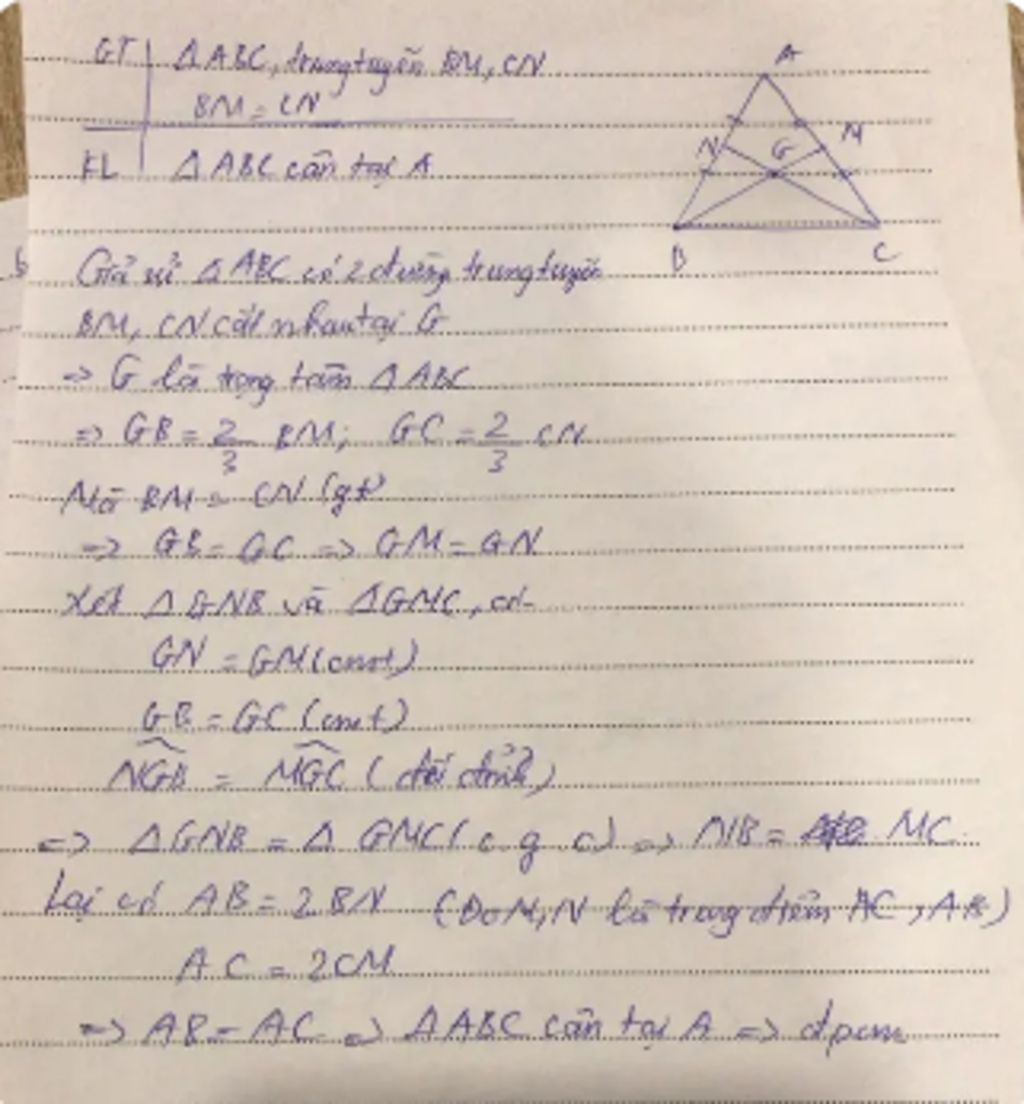 GT | ΔABC, trung tuyến BM, CN
BM = CN
KL | ΔABC cân tại A
A
N
G
M
B
C
Giả sử ΔABC có 2 đường trung tuyến
BM, CN cắt nhau tại G
=> G là trọng tâm ΔABC
=> GB = 2/3 BM; GC = 2/3 CN
Mà BM = CN (gt)
=> GB = GC => GM = GN
Xét ΔGNB và ΔGMC, có
GN = GM (cmt)
GB = GC (cmt)
∠NGB = ∠MGC (đối đỉnh)
=> ΔGNB = Δ GMC (c.g.c) => NB = MC
Lại có AB = 2BN (Do M, N là trung điểm AC, AB)
AC = 2CM
=> AB = AC => ΔABC cân tại A => đpcm